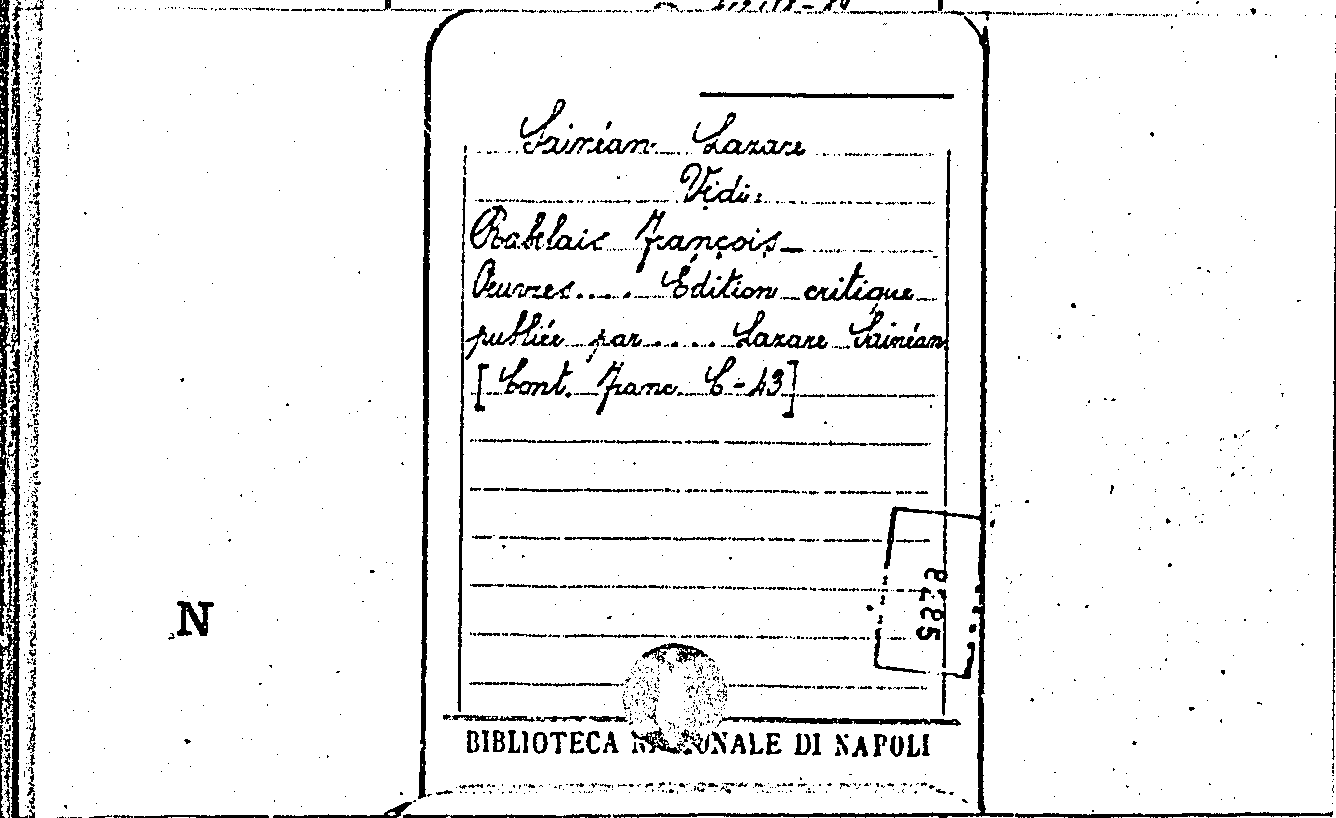 Sainéan Lazare
Vidi:
Rabelais François_
Œuvres.... Édition critique
publiée par.... Lazare Sainéan
[Cont. Franc. C-43]
N
BIBLIOTECA NAZIONALE DI NAPOLI